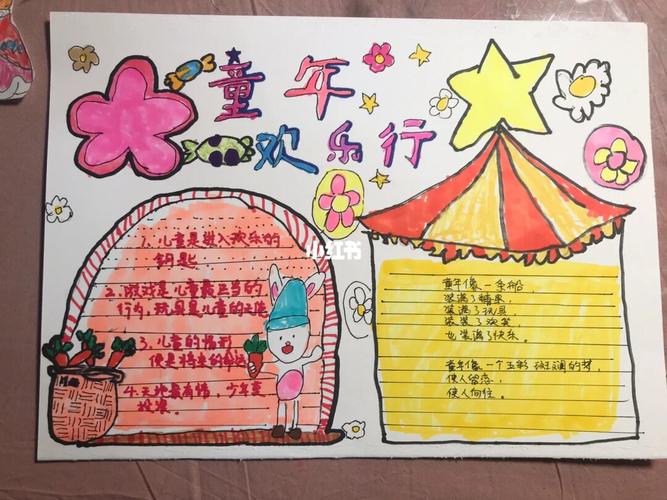 童年
欢乐行
1、儿童是进入欢乐的
钥匙
2、游戏是儿童最正当的
行为,玩具是儿童的天使
3、儿童的情形
便是将来的命运
4、天地最有情,少年莫
小红书
童年像一条船,
装满了糖果,
装满了玩具,
装满了欢笑,
也装满了快乐。
童年像一个五彩斑斓的梦,
使人留恋,
使人向往。